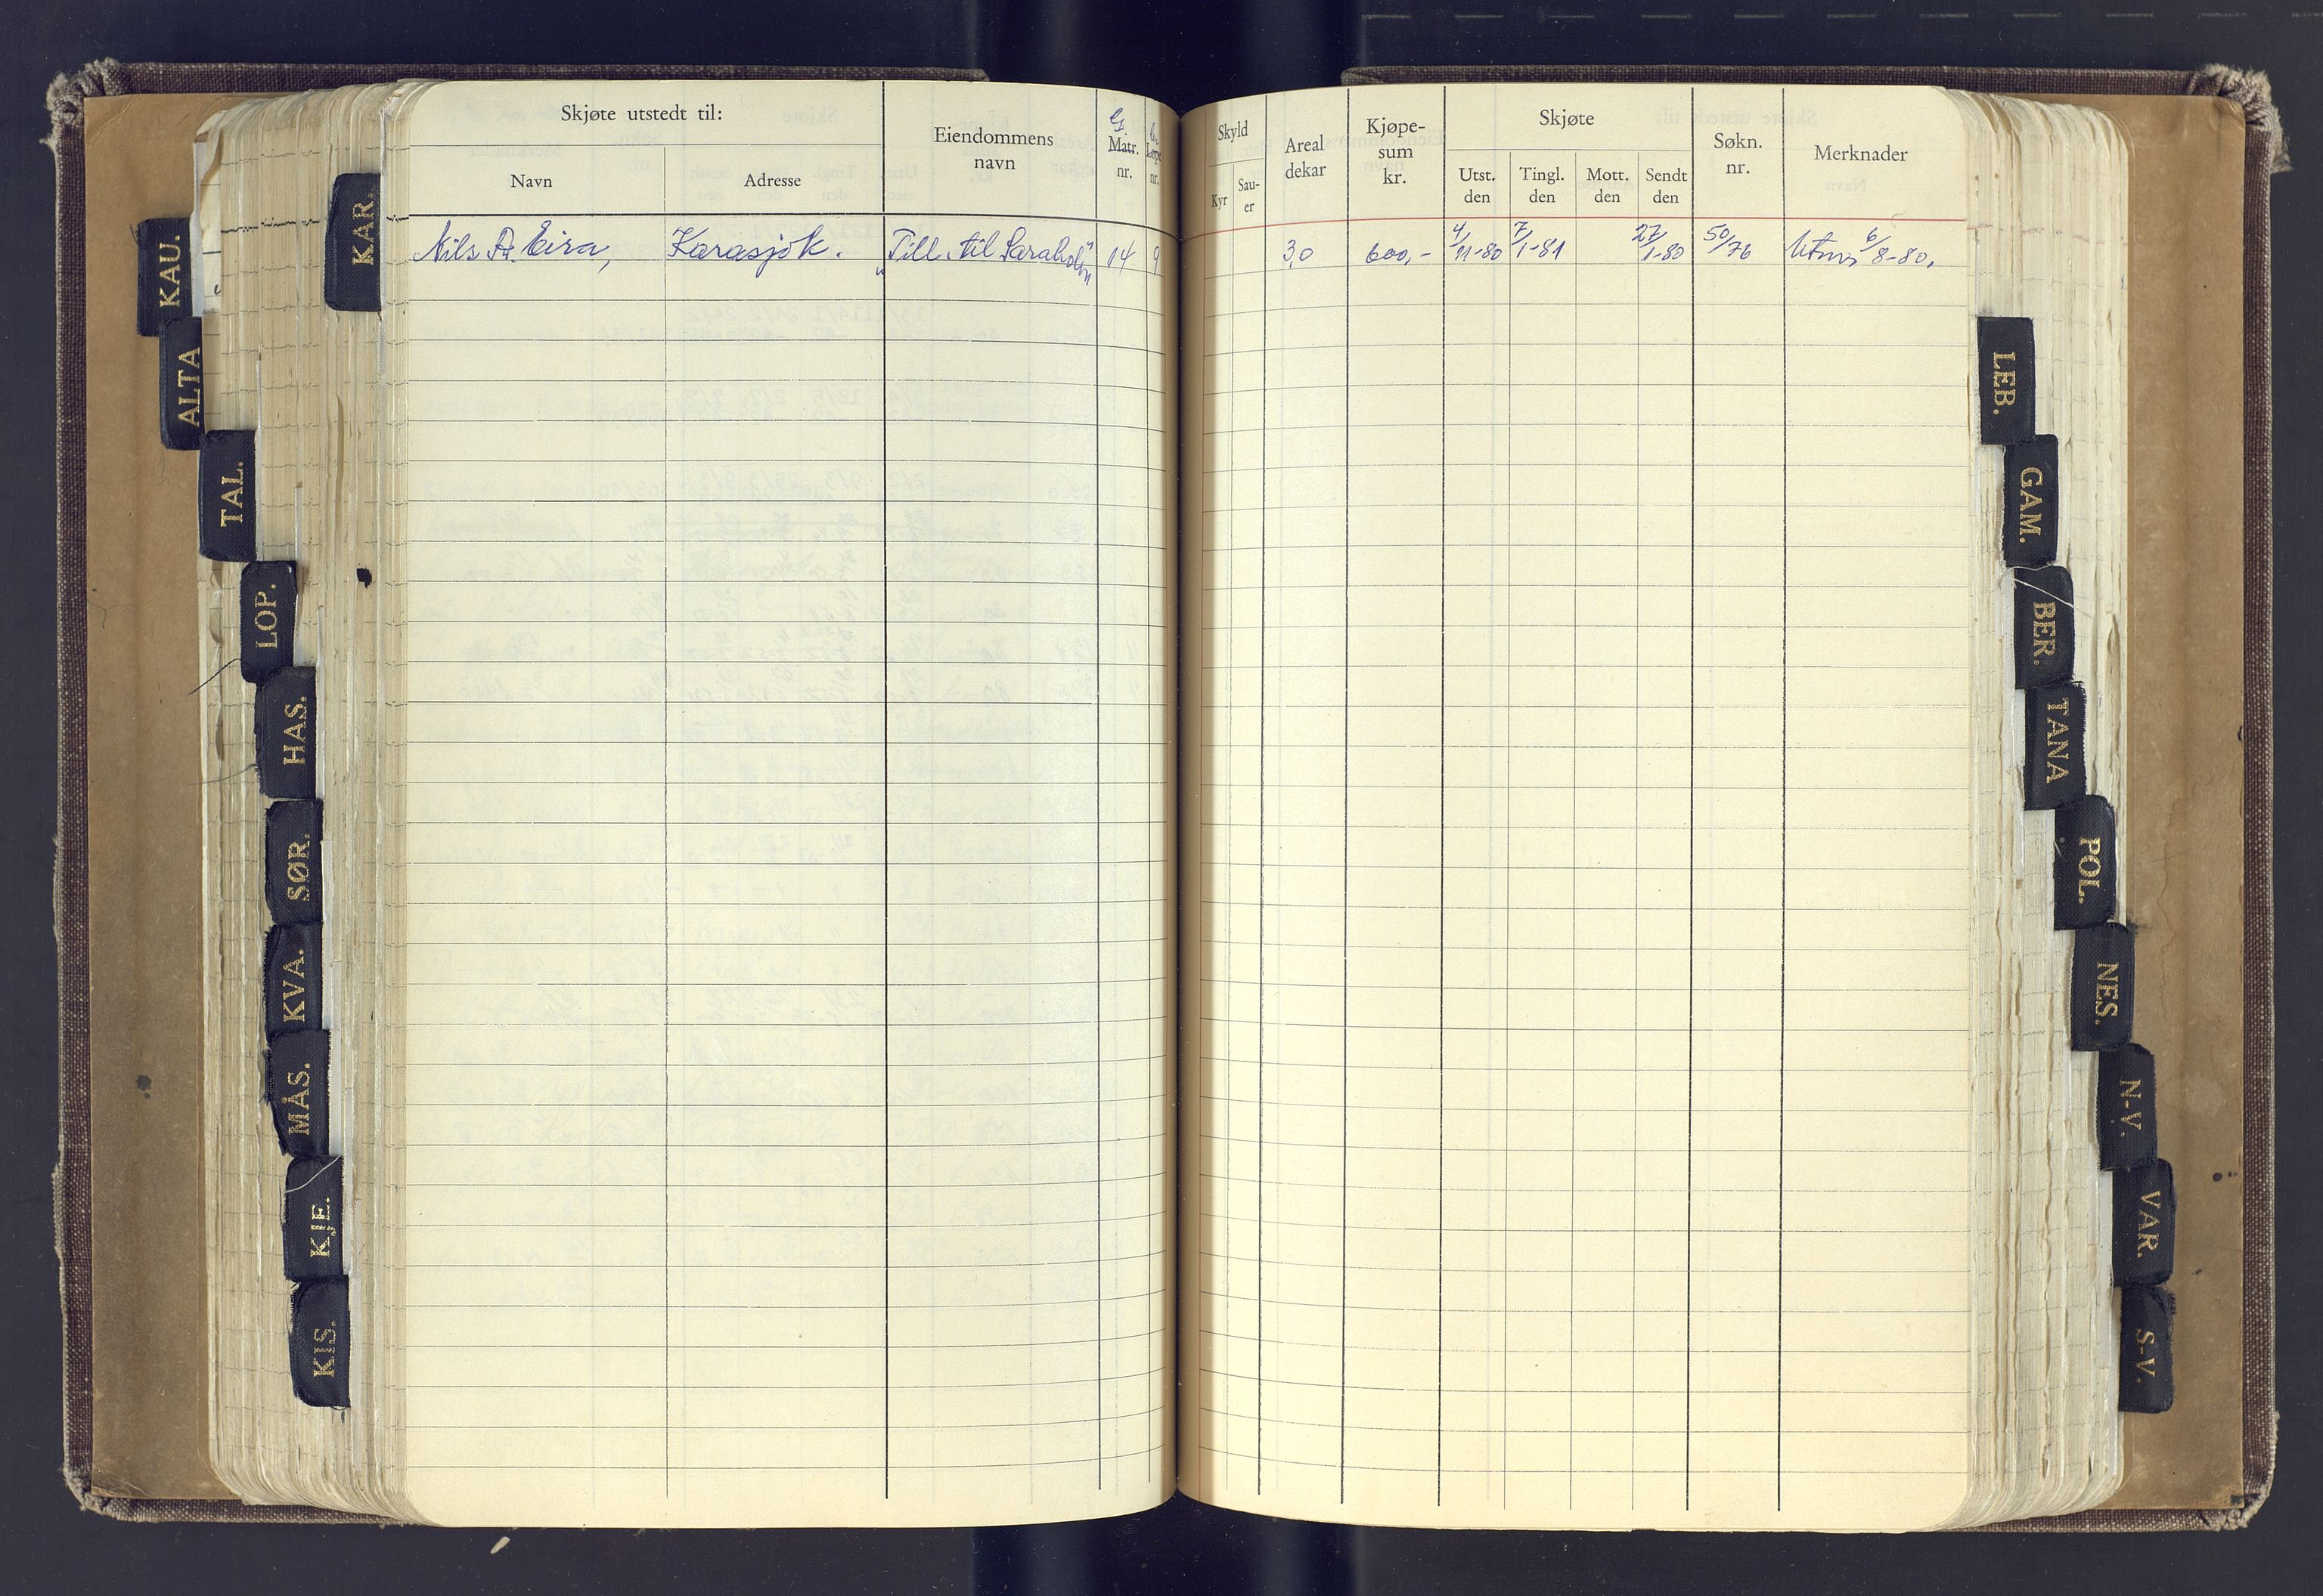 Skjøte utstedt til:
Navn
Adresse
Eiendommens
navn
G.
Matr.
nr.
nr.
Skyld
Kyr
Sau-
er
Areal
dekar
Kjøpe-
sum
kr.
Skjøte
Utst.
den
Tingl.
den
Mott.
den
Sendt
den
Søkn.
nr.
Merknader
Nils Eira, Karasjok. "Till. til 14 9 3,0 600,- 4/11-80 7/1-81 27/1-80 50/76 6/8-80.
KAR.
KAU.
ALTA
TAL.
LOP.
HAS.
SØR.
KVA.
MÅS.
KJE.
KIS.
LEB.
GAM.
BER.
TANA
POL.
NES.
N-V.
VAR.
S-V.